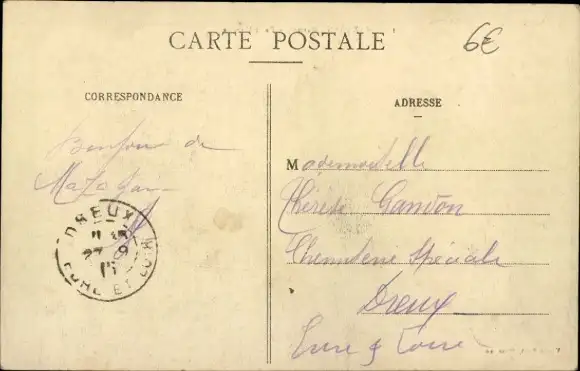 CARTE POSTALE
6€
CORRESPONDANCE
ADRESSE
Bonjour de
Mazagan
DREUX
27 9
EURE ET LOIR
Mademoiselle
Thérèse Gandon
Chemiserie Spéciale
Dreux
Eure & Loire